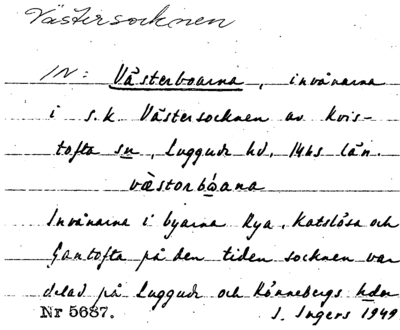 Västersocknen
IN: Västerboarna, invånarna
i s.k Västersocknen av Kvis-
tofta sn, Luggude hd, M län.
væstorbóana
Invånarna i byarna Rya, Katslösa och
Gantofta på den tiden socknen var
delad på Luggude och Rönnebergs hder
Nr 5687. I. Ingers 1949